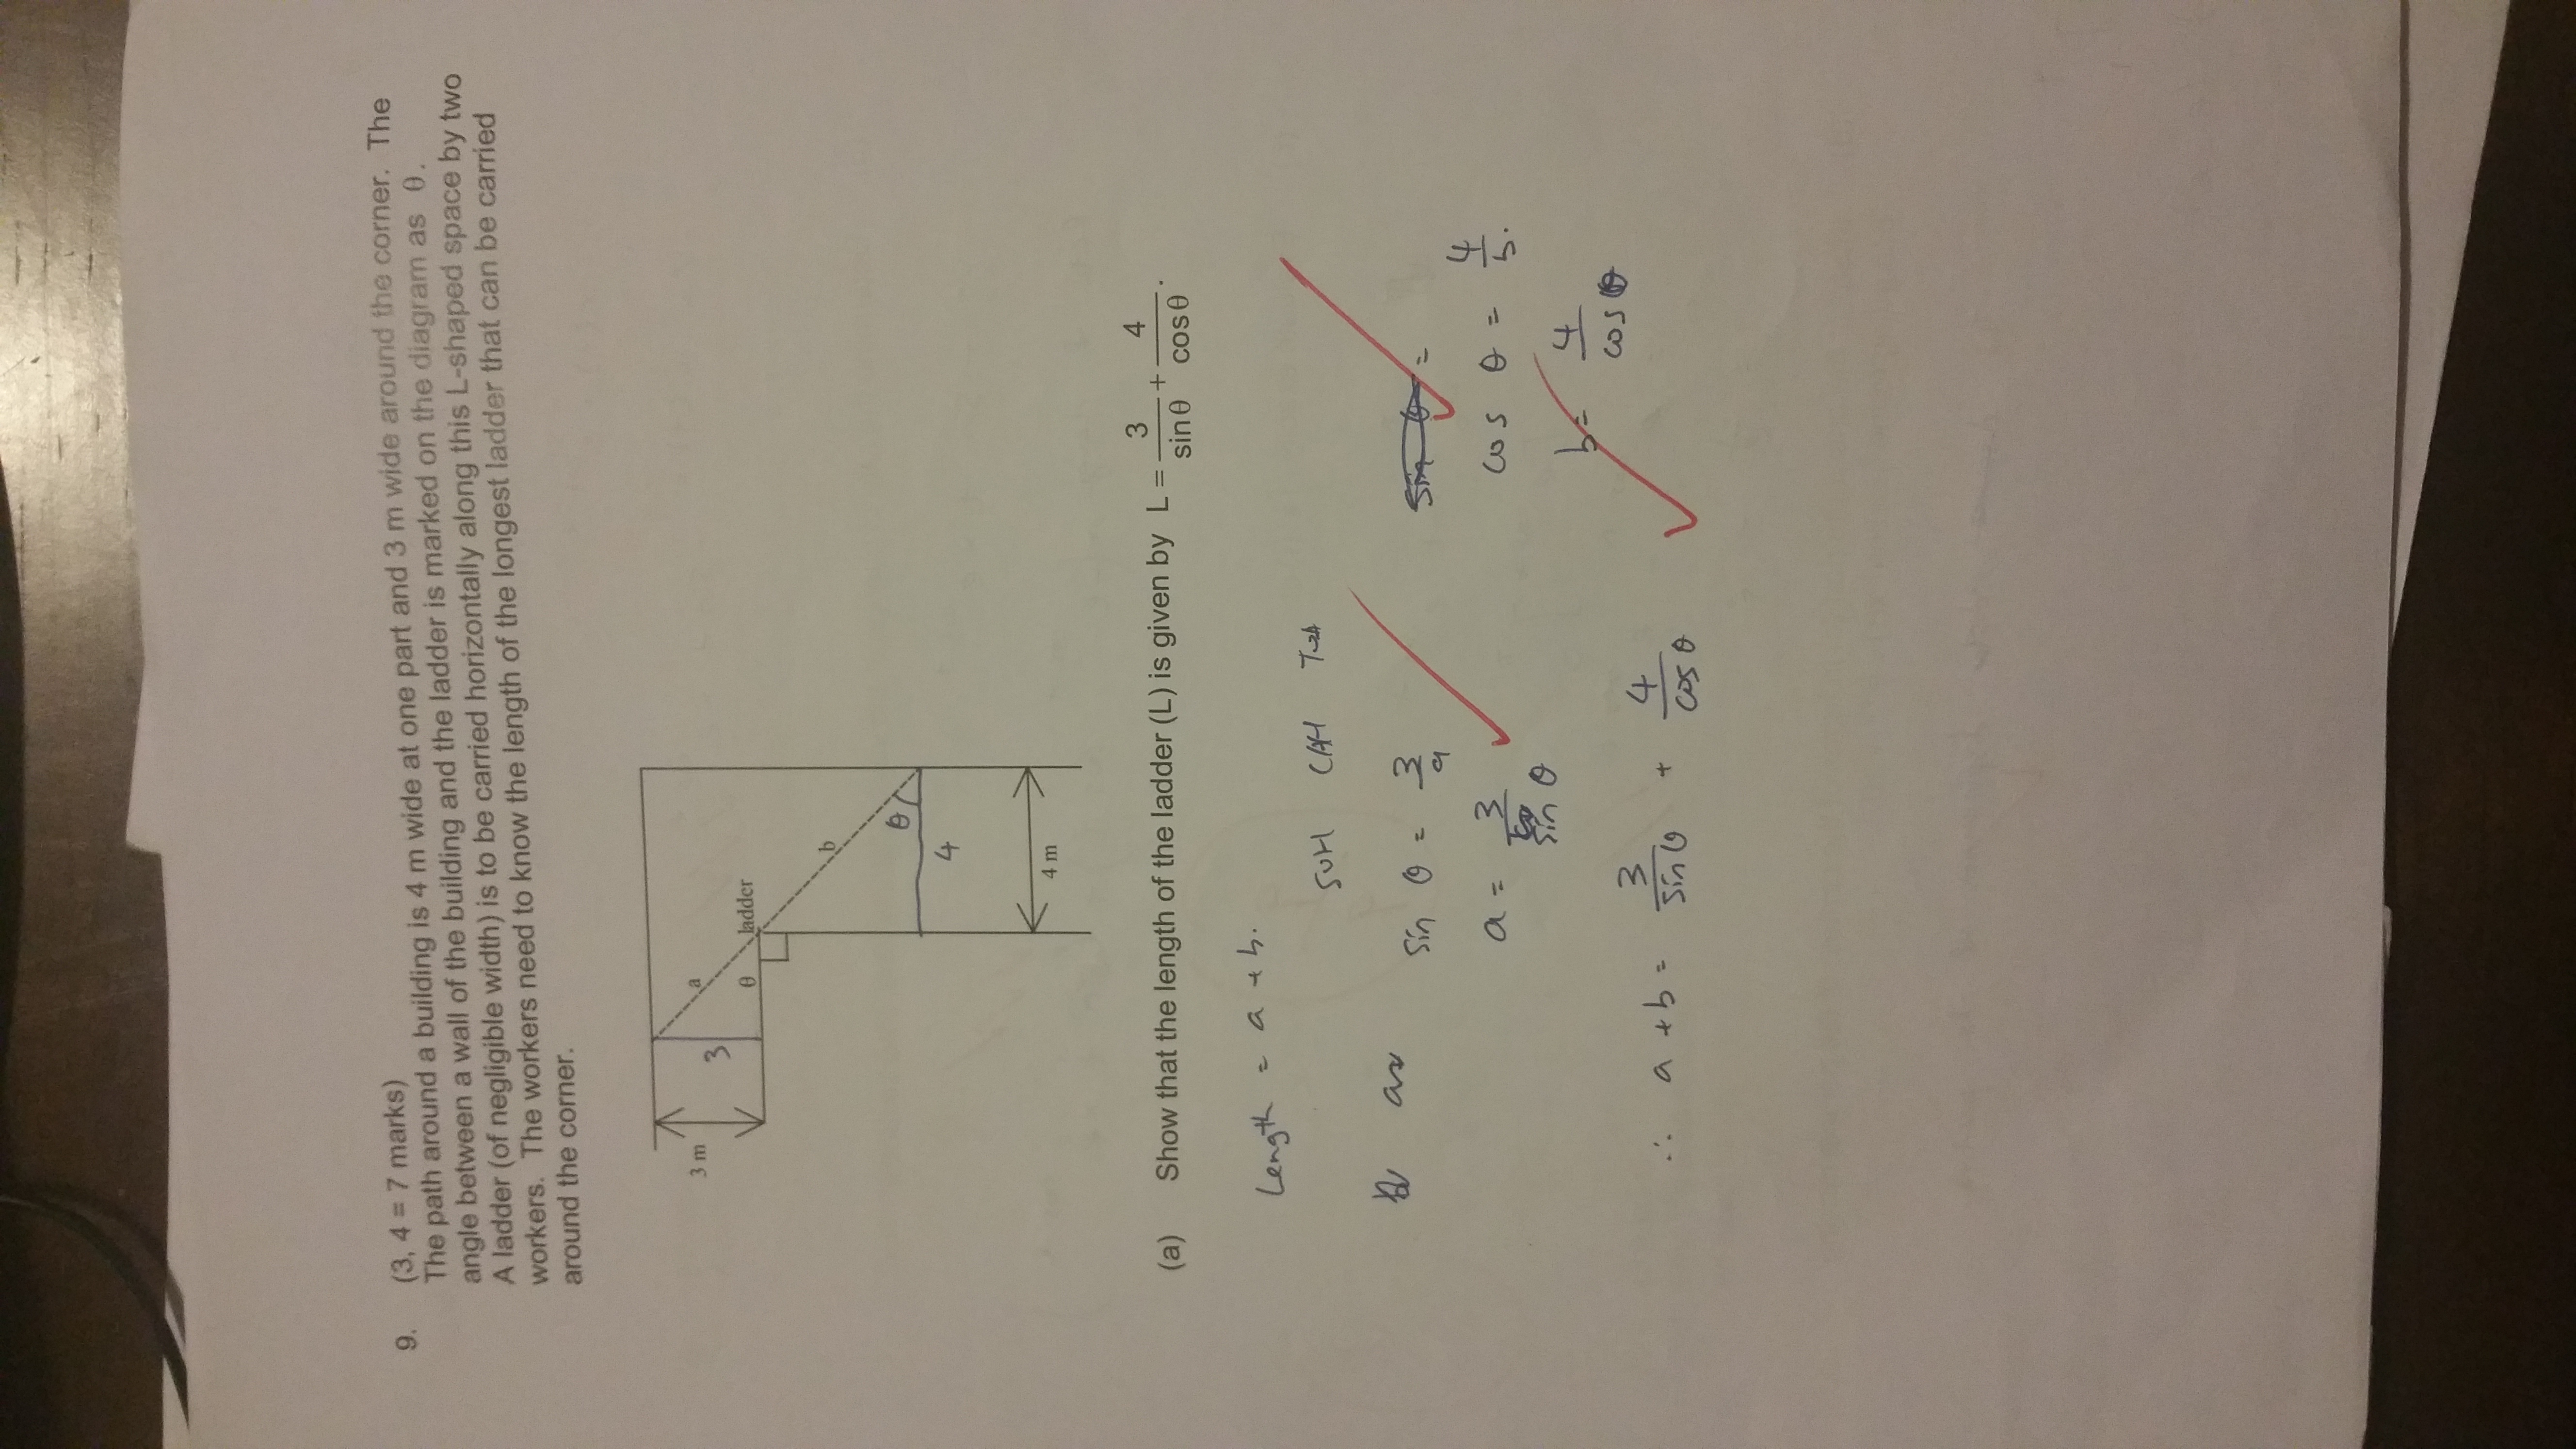 9. (3, 4 = 7 marks)
The path around a building is 4 m wide at one part and 3 m wide around the corner. The
angle between a wall of the building and the ladder is marked on the diagram as θ.
A ladder (of negligible width) is to be carried horizontally along this L-shaped space by two
workers. The workers need to know the length of the longest ladder that can be carried
around the corner.
3 m
3
a
θ
ladder
b
θ
4
4 m
(a) Show that the length of the ladder (L) is given by L = 3/sinθ + 4/cosθ.
Length = a + b.
SOH CAH TOA
sin θ = 3/a
a = 3/sin θ
sin θ =
cos θ = 4/b.
b = 4/cos θ
∴ a + b = 3/sin θ + 4/cos θ